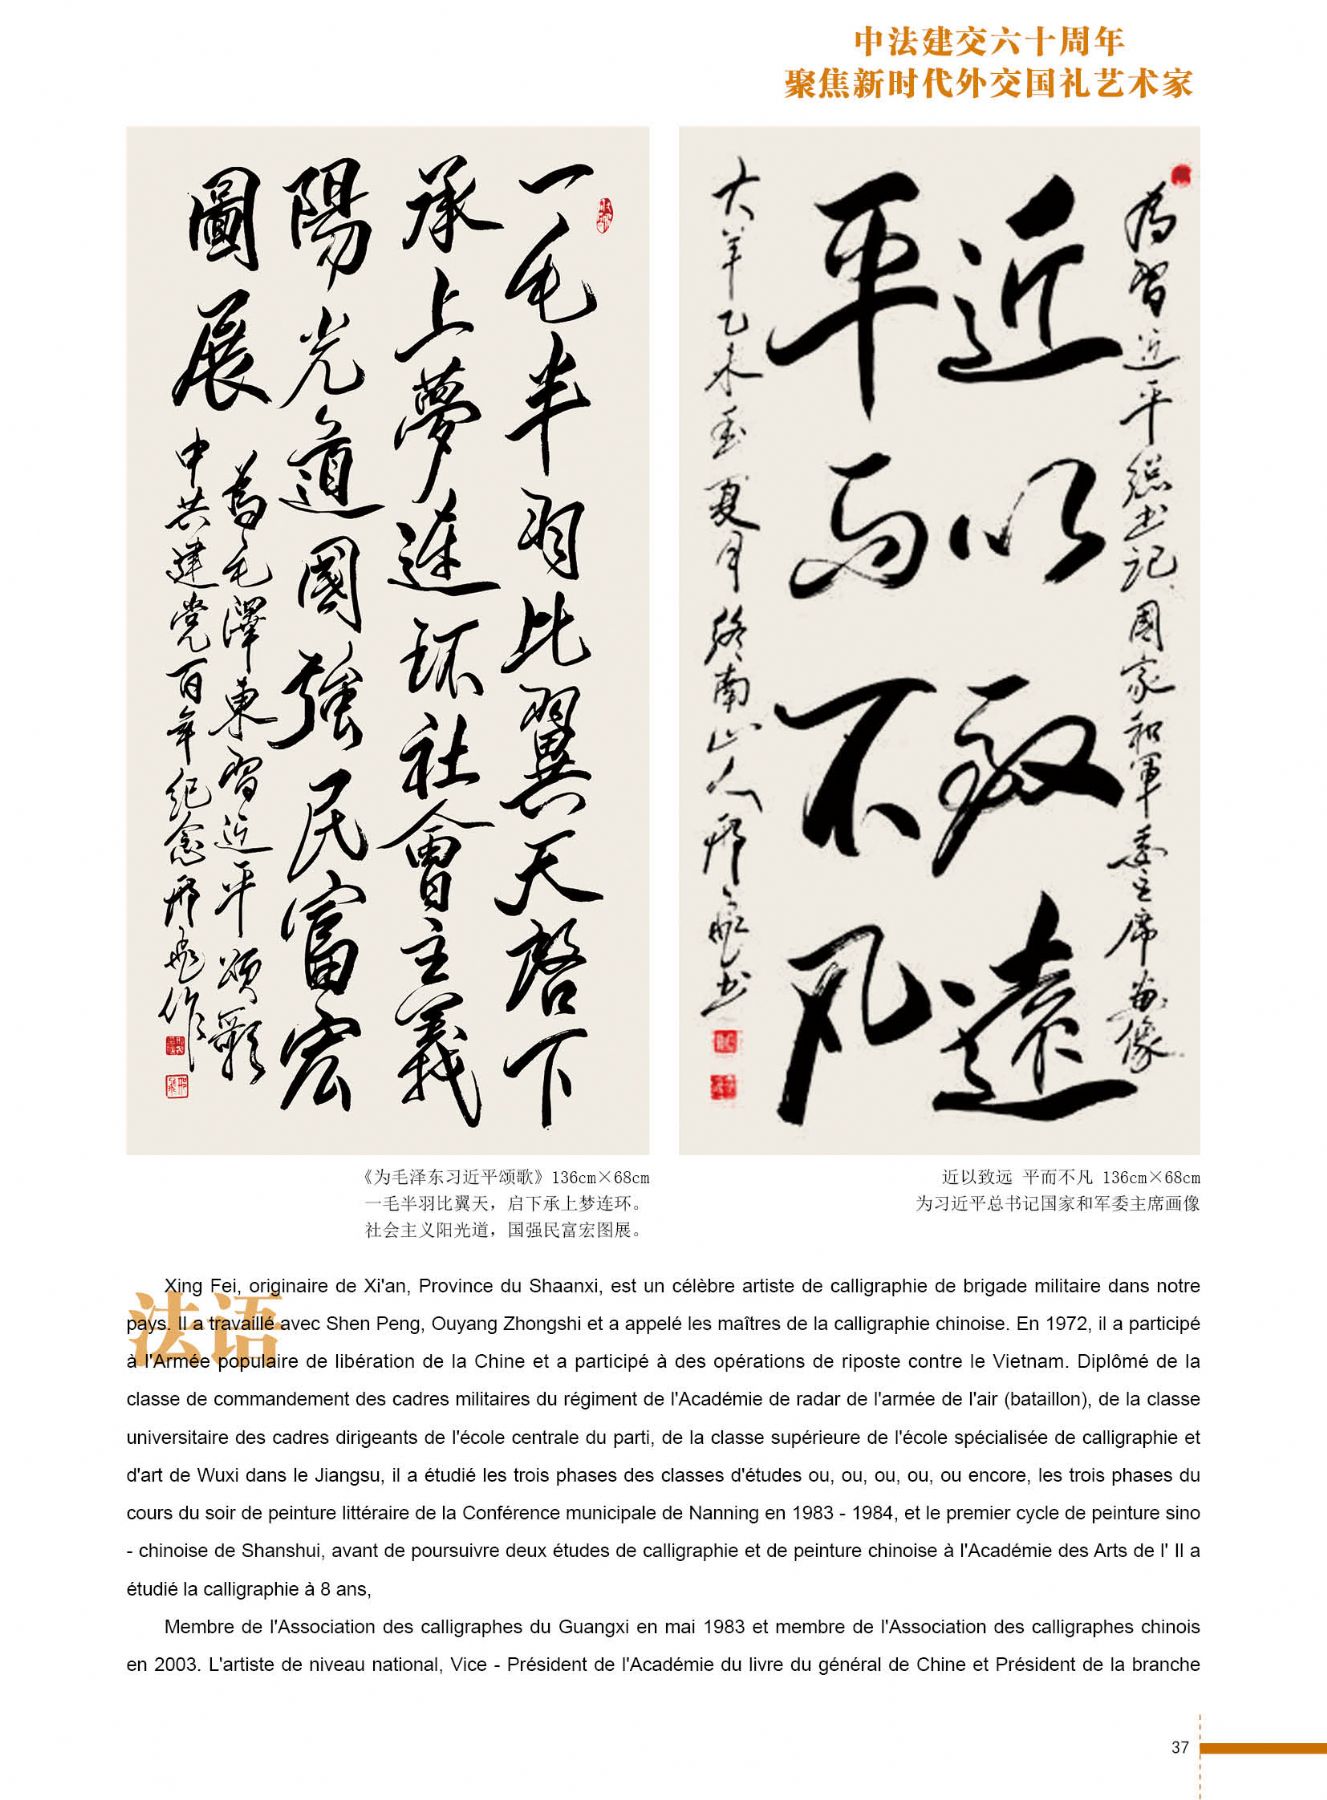 中法建交六十周年
聚焦新时代外交国礼艺术家
一毛半羽比翼天啓下
承上夢連環社會主義
陽光道國強民富宏
圖展
為毛澤東習近平頌歌
中共建党百年纪念邢飛作
為習近平總书记国家和軍委主席画像
近以致遠
平而不凡
大羊乙未年夏月終南山人邢飛书
《为毛泽东习近平颂歌》136cm×68cm
一毛半羽比翼天，启下承上梦连环。
社会主义阳光道，国强民富宏图展。
近以致远 平而不凡 136cm×68cm
为习近平总书记国家和军委主席画像
法语
Xing Fei, originaire de Xi'an, Province du Shaanxi, est un célèbre artiste de calligraphie de brigade militaire dans notre
pays. Il a travaillé avec Shen Peng, Ouyang Zhongshi et a appelé les maîtres de la calligraphie chinoise. En 1972, il a participé
à l'Armée populaire de libération de la Chine et a participé à des opérations de riposte contre le Vietnam. Diplômé de la
classe de commandement des cadres militaires du régiment de l'Académie de radar de l'armée de l'air (bataillon), de la classe
universitaire des cadres dirigeants de l'école centrale du parti, de la classe supérieure de l'école spécialisée de calligraphie et
d'art de Wuxi dans le Jiangsu, il a étudié les trois phases des classes d'études ou, ou, ou, ou, ou encore, les trois phases du
cours du soir de peinture littéraire de la Conférence municipale de Nanning en 1983 - 1984, et le premier cycle de peinture sino
- chinoise de Shanshui, avant de poursuivre deux études de calligraphie et de peinture chinoise à l'Académie des Arts de l' Il a
étudié la calligraphie à 8 ans,
Membre de l'Association des calligraphes du Guangxi en mai 1983 et membre de l'Association des calligraphes chinois
en 2003. L'artiste de niveau national, Vice - Président de l'Académie du livre du général de Chine et Président de la branche
37